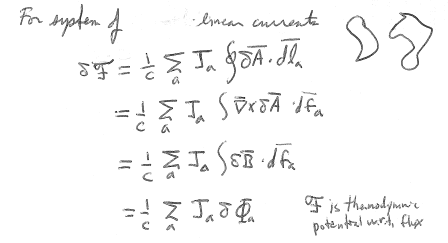 For system of linear currents
δℱ = 1/c Σ_a J_a ∮ δA̅ · d̅l̅_a
= 1/c Σ_a J_a ∫ ∇̅ × δA̅ · d̅f̅_a
= 1/c Σ_a J_a ∫ δB̅ · d̅f̅_a
= 1/c Σ_a J_a δ Φ_a
ℱ is thermodynamic
potential w.r.t. flux